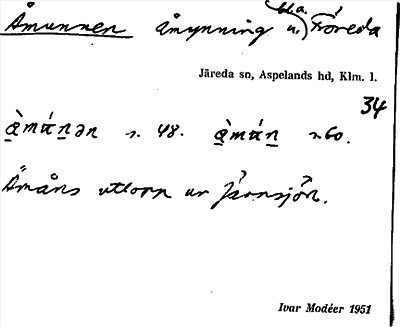 Åmunnen åmynning bl.a. i Fröreda
Järeda sn, Aspelands hd, Klm. l.
34
å̱̀mú̱nən s. 48. å̱̀mú̱n s. 60.
"Åmåns utlopp ur Järnsjön.
Ivar Modéer 1951